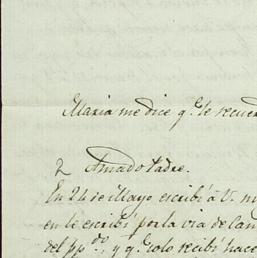 Maria me dice q.e le recuer
2 Amado Padre.
En 24 de Mayo escribí á V. m
en le escribí por la via de Can
del pp.do, y q. solo recibí hace